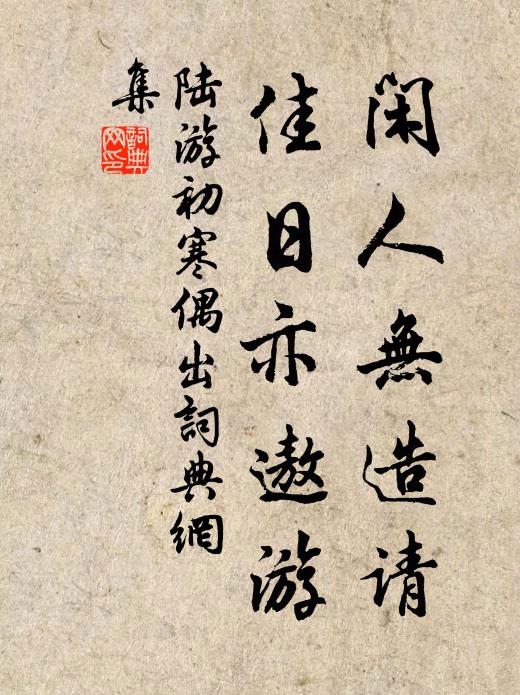 闲人無造请
佳日亦遨游
陆游初寒偶出詞典網
集
詞典
网印